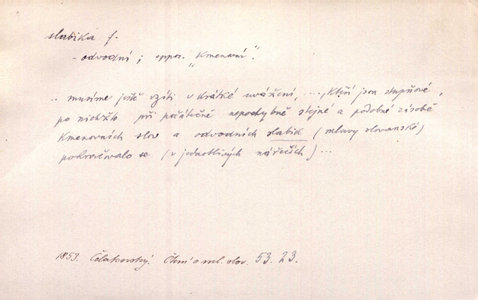 slabika f.
- odvodní; oppos. "kmenová".
.. musíme ještě vzíti v krátké uvážení, ..., kteří jsou stupňové,
po nichžto při počátečně nepochybně stejné a podobné zásobě
kmenovních slov a odvodních slabik (mluvy slovanské)
pokračovalo se (v jednotlivých nářečích) ...
1853. Čelakovský. Čtení o ml. slov. 53. 23.